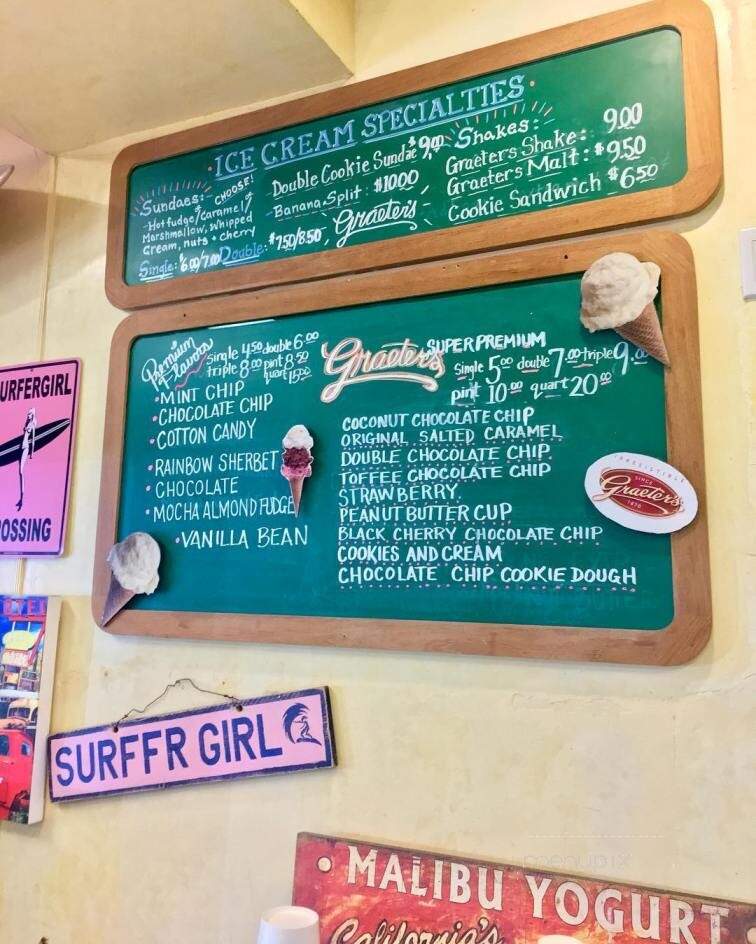 ICE CREAM SPECIALTIES
Sundaes:
CHOOSE!
Hot fudge/Caramel/
Marshmallow, whipped
Cream, nuts + cherry
Single: 6.00/7.00 Double: $7.50/8.50
Double Cookie Sundae $9.00
Banana Split: $10.00
Graeter's
Shakes:
Graeters Shake: 9.00
Graeters Malt: $9.50
Cookie Sandwich $6.50
Premium Flavors
Single 4.50 double 6.00
triple 8.00 pint 8.50
quart
•MINT CHIP
•CHOCOLATE CHIP
•COTTON CANDY
•RAINBOW SHERBET
•CHOCOLATE
•MOCHA ALMOND FUDGE
•VANILLA BEAN
Graeter's SUPER PREMIUM
Single 5.00 double 7.00 triple 9.00
pint 10.00 quart 20.00
COCONUT CHOCOLATE CHIP
ORIGINAL SALTED CARAMEL
DOUBLE CHOCOLATE CHIP
TOFFEE CHOCOLATE CHIP
STRAWBERRY
PEANUT BUTTER CUP
BLACK CHERRY CHOCOLATE CHIP
COOKIES AND CREAM
CHOCOLATE CHIP COOKIE DOUGH
IRRESISTIBLE
SINCE
Graeter's
1870
URFERGIRL
OSSING
SURFFR GIRL
MALIBU YOGURT
California's
menupix